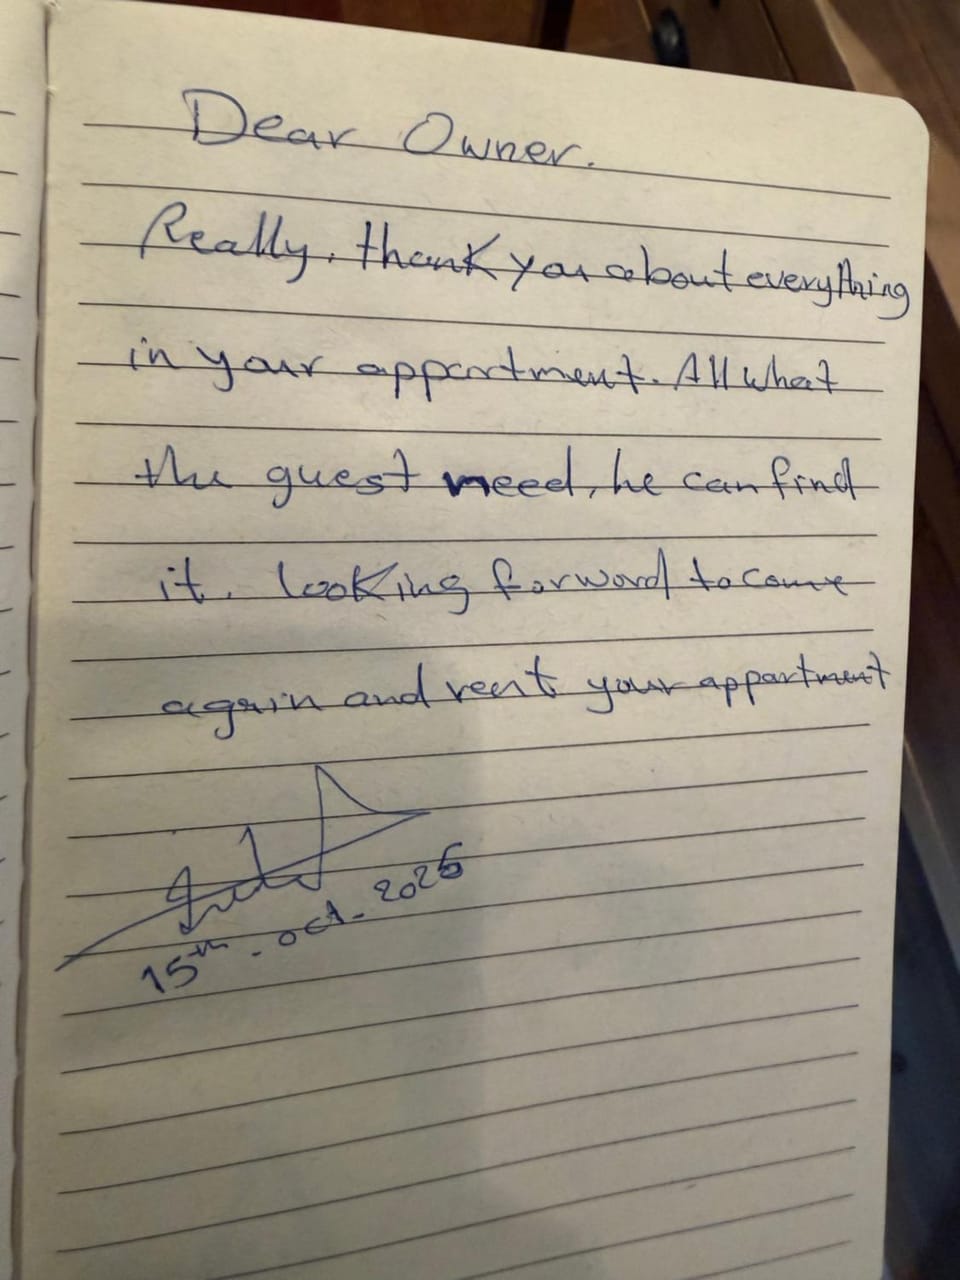 Dear Owner.
Really, thank you about everything
in your appartment. All what
the guest need, he can find
it. looking forword to come
again and reent your appartment
15th - oct - 2025